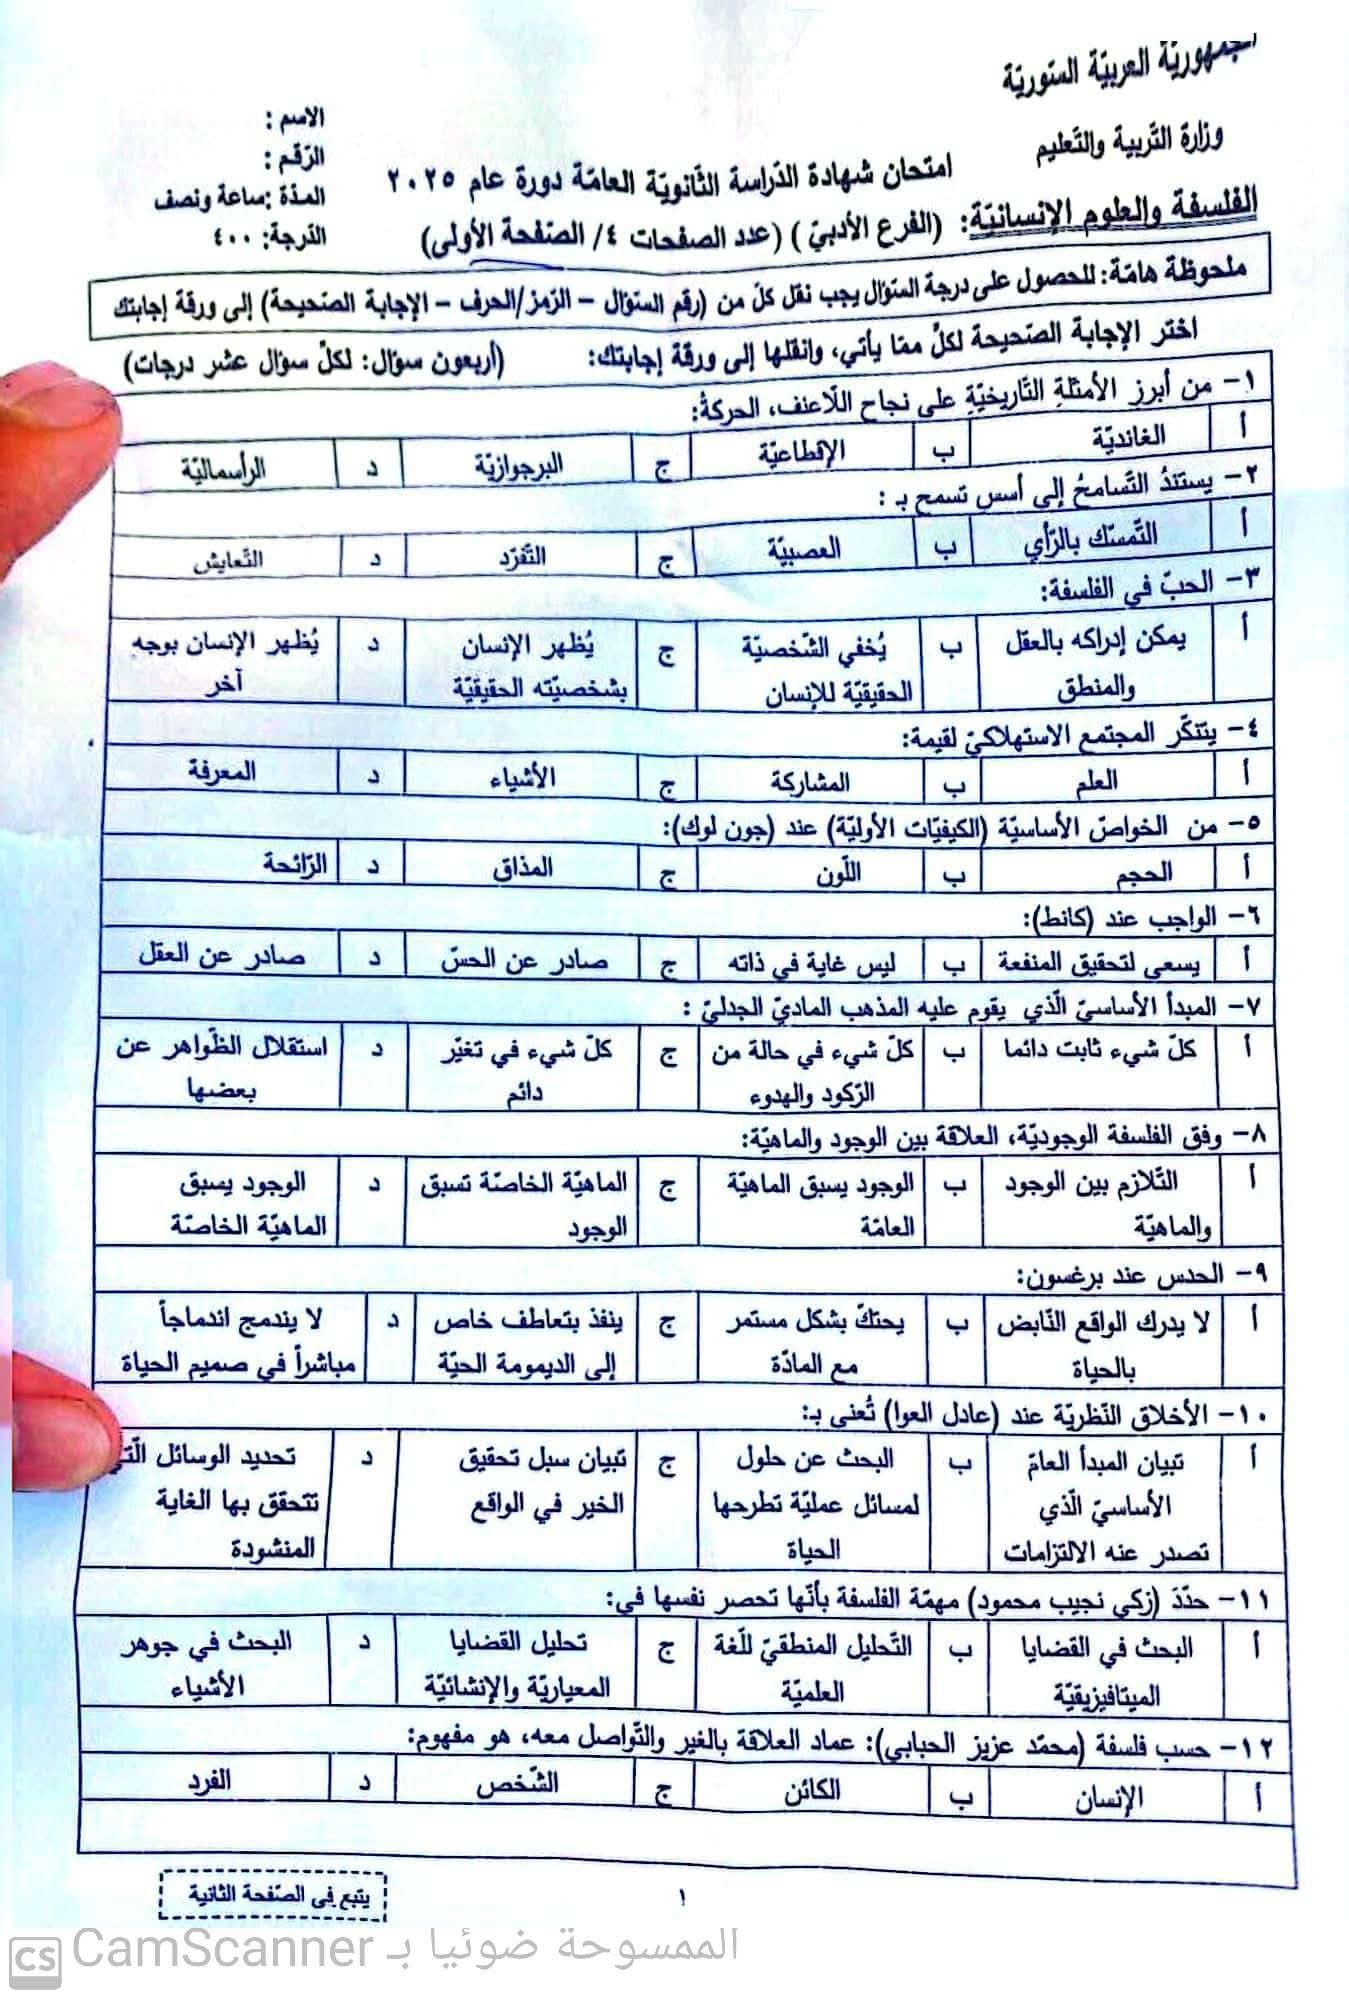 الجمهوريّة العربيّة السّوريّة
وزارة التّربية والتّعليم
امتحان شهادة الدّراسة الثّانويّة العامّة دورة عام ٢٠٢٥
الفلسفة والعلوم الإنسانيّة: (الفرع الأدبيّ) (عدد الصفحات ٤/ الصّفحة الأولى)
الاسم :
الرّقم :
المدّة :ساعة ونصف
الدّرجة: ٤٠٠
ملحوظة هامّة: للحصول على درجة السّؤال يجب نقل كلّ من (رقم السّؤال – الرّمز/الحرف – الإجابة الصّحيحة) إلى ورقة إجابتك
اختر الإجابة الصّحيحة لكلّ ممّا يأتي، وانقلها إلى ورقة إجابتك: (أربعون سؤال: لكلّ سؤال عشر درجات)
١- من أبرزِ الأمثلةِ التّاريخيّةِ على نجاح اللّاعنف، الحركةُ:
أ الغانديّة ب الإقطاعيّة ج البرجوازيّة د الرأسماليّة
٢- يستندُ التّسامحُ إلى أسس تسمح بـ :
أ التّمسّك بالرّأي ب العصبيّة ج التّفرّد د التّعايش
٣- الحبّ في الفلسفة:
أ يمكن إدراكه بالعقل والمنطق ب يُخفي الشّخصيّة الحقيقيّة للإنسان ج يُظهر الإنسان بشخصيّته الحقيقيّة د يُظهر الإنسان بوجه آخر
٤- يتنكّر المجتمع الاستهلاكيّ لقيمة:
أ العلم ب المشاركة ج الأشياء د المعرفة
٥- من الخواصّ الأساسيّة (الكيفيّات الأوليّة) عند (جون لوك):
أ الحجم ب اللّون ج المذاق د الرّائحة
٦- الواجب عند (كانط):
أ يسعى لتحقيق المنفعة ب ليس غاية في ذاته ج صادر عن الحسّ د صادر عن العقل
٧- المبدأ الأساسيّ الّذي يقوم عليه المذهب الماديّ الجدليّ :
أ كلّ شيء ثابت دائما ب كلّ شيء في حالة من الرّكود والهدوء ج كلّ شيء في تغيّر دائم د استقلال الظّواهر عن بعضها
٨- وفق الفلسفة الوجوديّة، العلاقة بين الوجود والماهيّة:
أ التّلازم بين الوجود والماهيّة ب الوجود يسبق الماهيّة العامّة ج الماهيّة الخاصّة تسبق الوجود د الوجود يسبق الماهيّة الخاصّة
٩- الحدس عند برغسون:
أ لا يدرك الواقع النّابض بالحياة ب يحتكّ بشكل مستمر مع المادّة ج ينفذ بتعاطف خاص إلى الديمومة الحيّة د لا يندمج اندماجاً مباشراً في صميم الحياة
١٠- الأخلاق النّظريّة عند (عادل العوا) تُعنى بـ:
أ تبيان المبدأ العامّ الأساسيّ الّذي تصدر عنه الالتزامات ب البحث عن حلول لمسائل عمليّة تطرحها الحياة ج تبيان سبل تحقيق الخير في الواقع د تحديد الوسائل الّتي تتحقق بها الغاية المنشودة
١١- حدّدَ (زكي نجيب محمود) مهمّة الفلسفة بأنّها تحصر نفسها في:
أ البحث في القضايا الميتافيزيقيّة ب التّحليل المنطقيّ للّغة العلميّة ج تحليل القضايا المعياريّة والإنشائيّة د البحث في جوهر الأشياء
١٢- حسب فلسفة (محمّد عزيز الحبابي): عماد العلاقة بالغير والتّواصل معه، هو مفهوم:
أ الإنسان ب الكائن ج الشّخص د الفرد
١
يتبع في الصّفحة الثّانية
CS الممسوحة ضوئيا بـ CamScanner